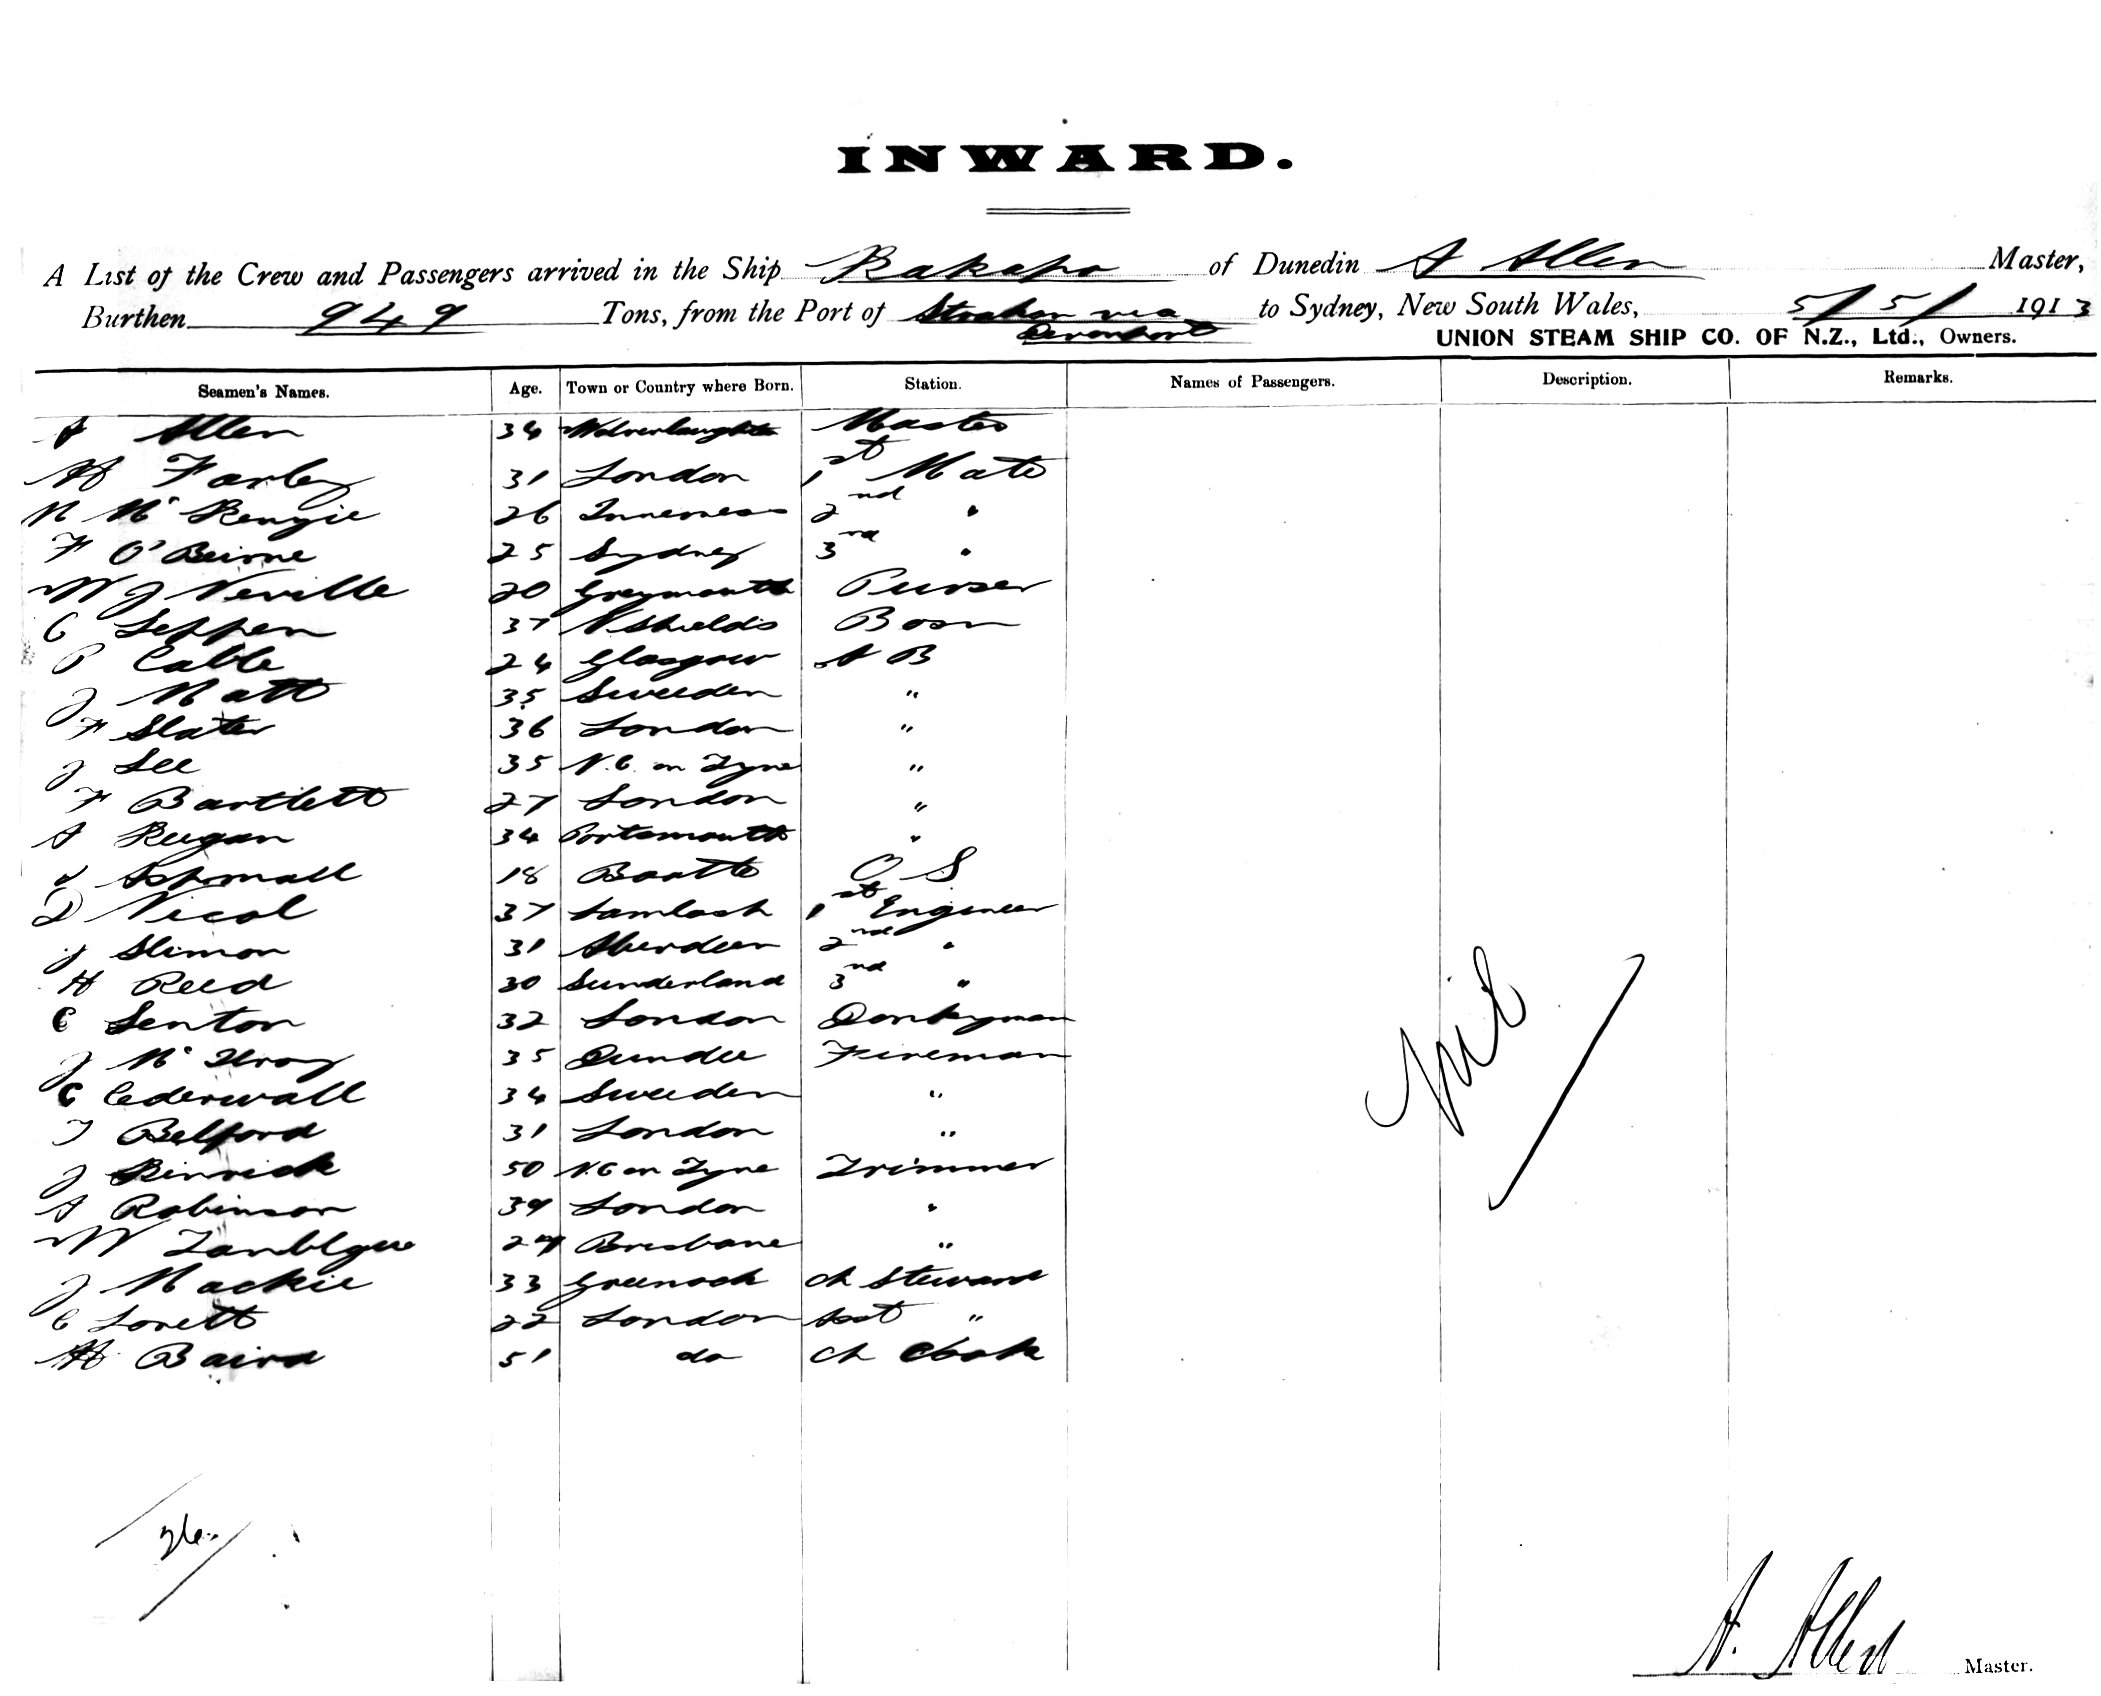 INWARD.
A List of the Crew and Passengers arrived in the Ship Kakapo of Dunedin A Allen Master,
Burthen 949 Tons, from the Port of Strahan via Devonport to Sydney, New South Wales, 5/5/1913
UNION STEAM SHIP CO. OF N.Z., Ltd., Owners.
Seamen's Names. Age. Town or Country where Born. Station. Names of Passengers. Description. Remarks.
A Allen 34 Master
H Farley 31 London 1st Mate
N McKenzie 26 Inverness 2nd "
F O'Beirne 25 Sydney 3rd "
W J Neville 20 Greymouth Purser
C Seppen 37 N Shields Bosn
P Cable 24 Glasgow A B
J Matt 35 Sweeden "
F Slater 36 London "
J Lee 35 N.C. on Tyne "
F Bartlett 27 London "
A Keegan 34 Portsmouth "
18 Bootle O S
D Nicol 37 Lamlash 1st Engineer
J Slimon 31 Aberdeen 2nd "
H Reed 30 Sunderland 3rd "
C Senton 32 London Donkeyman
J McIlroy 35 Dundee Fireman
C Cederwall 34 Sweeden "
T Belford 31 London "
J 50 N.C on Tyne Trimmer
A Robinson 39 London "
W Brisbane "
J Mackie 33 Greenock Ch Steward
C Lovett 22 London Asst "
H Baird 51 do Ch Cook
Nil
26
A. Allen Master.